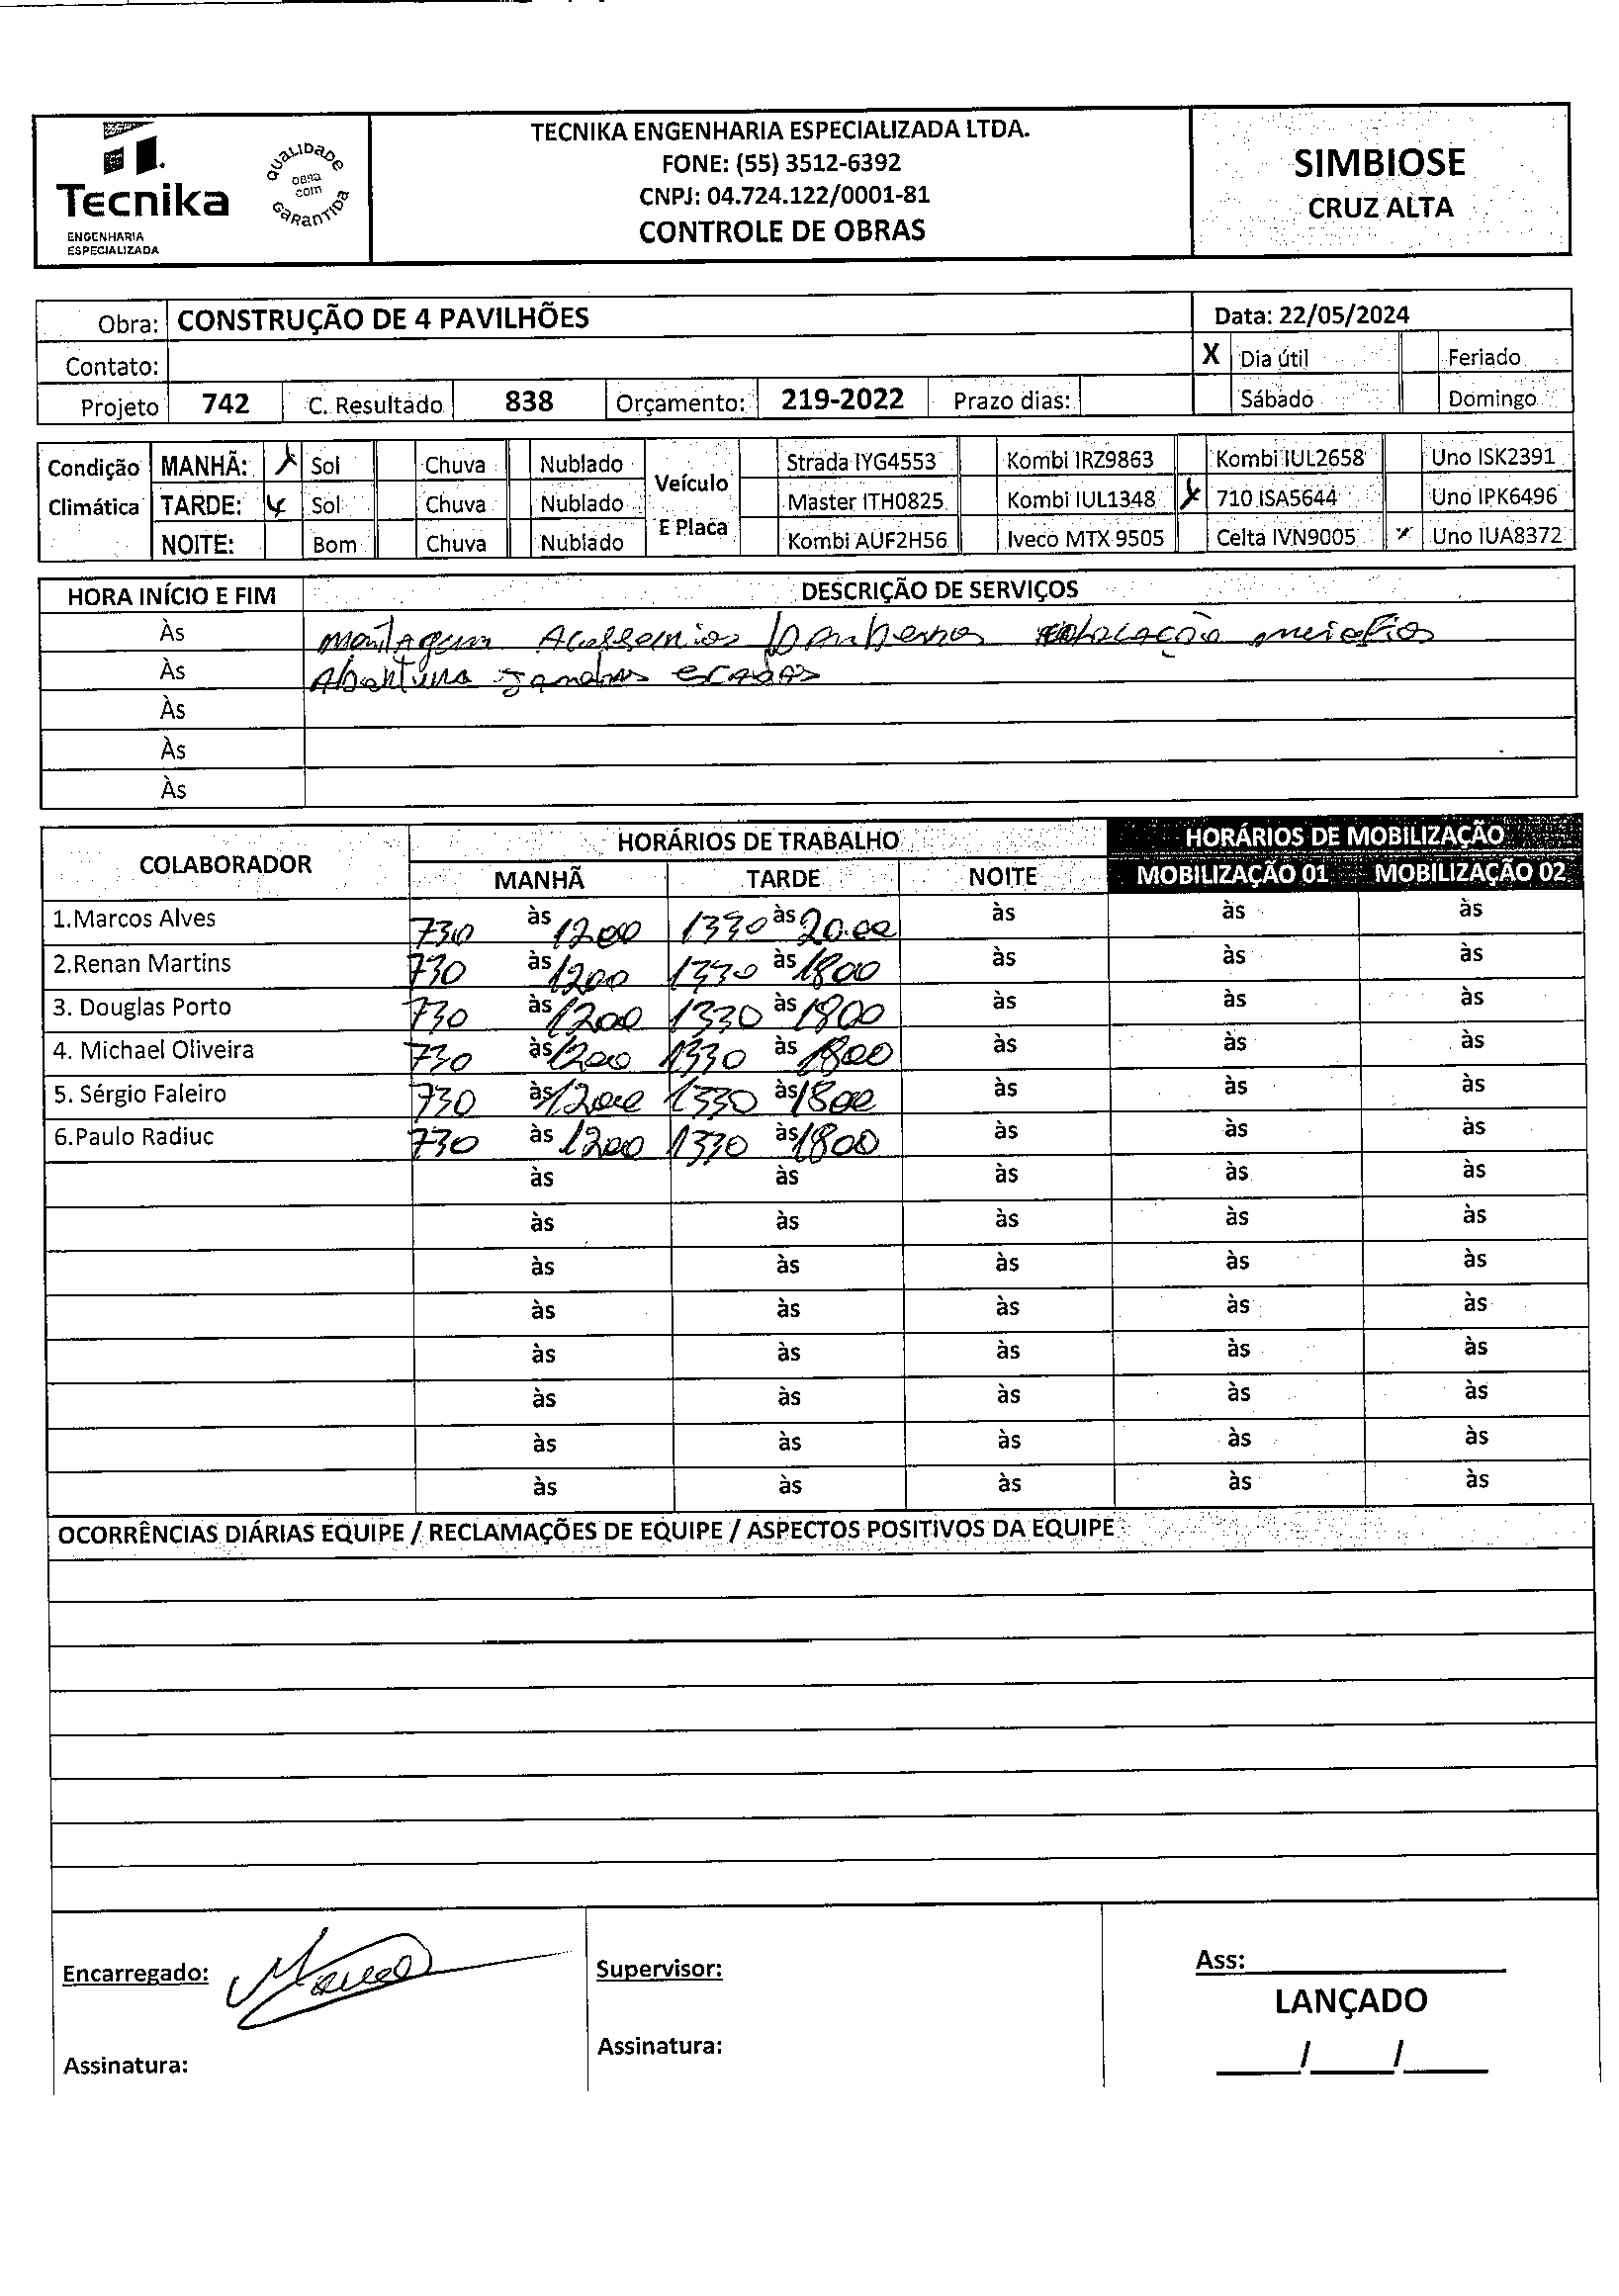 Tecnika
ENGENHARIA
ESPECIALIZADA
QUALIDADE
OBRA
COM
GARANTIDA
TECNIKA ENGENHARIA ESPECIALIZADA LTDA.
FONE: (55) 3512-6392
CNPJ: 04.724.122/0001-81
CONTROLE DE OBRAS
SIMBIOSE
CRUZ ALTA
Obra: CONSTRUÇÃO DE 4 PAVILHÕES Data: 22/05/2024
Contato: X Dia útil Feriado
Projeto 742 C. Resultado 838 Orçamento: 219-2022 Prazo dias: Sábado Domingo
Condição Climática
MANHÃ: X Sol Chuva Nublado
TARDE: X Sol Chuva Nublado
NOITE: Bom Chuva Nublado
Veículo E Placa
Strada IYG4553 Kombi IRZ9863 Kombi IUL2658 Uno ISK2391
Master ITH0825 Kombi IUL1348 X 710 ISA5644 Uno IPK6496
Kombi AUF2H56 Iveco MTX 9505 Celta IVN9005 X Uno IUA8372
HORA INÍCIO E FIM DESCRIÇÃO DE SERVIÇOS
Às Montagem
Às Abertura janelas escadas
Às
Às
Às
COLABORADOR HORÁRIOS DE TRABALHO HORÁRIOS DE MOBILIZAÇÃO
MANHÃ TARDE NOITE MOBILIZAÇÃO 01 MOBILIZAÇÃO 02
1.Marcos Alves 730 às 1200 1330 às 20.00 às às às
2.Renan Martins 730 às 1200 1330 às 1800 às às às
3. Douglas Porto 730 às 1200 1330 às 1800 às às às
4. Michael Oliveira 730 às 1200 1330 às 1800 às às às
5. Sérgio Faleiro 730 às 1200 1330 às 1800 às às às
6.Paulo Radiuc 730 às 1200 1330 às 1800 às às às
às às às às às
às às às às às
às às às às às
às às às às às
às às às às às
às às às às às
às às às às às
às às às às às
OCORRÊNCIAS DIÁRIAS EQUIPE / RECLAMAÇÕES DE EQUIPE / ASPECTOS POSITIVOS DA EQUIPE
Encarregado: Supervisor: Ass:
LANÇADO
Assinatura: Assinatura: / /